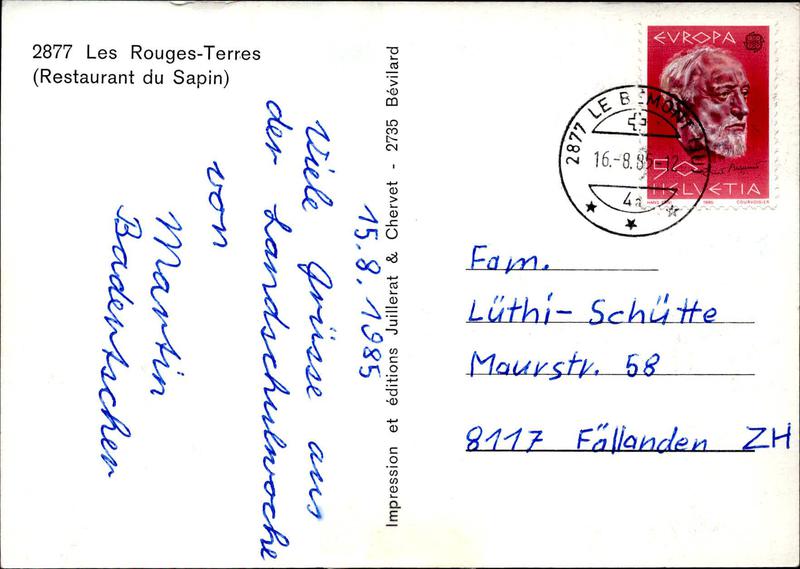 2877 Les Rouges-Terres
(Restaurant du Sapin)
15.8.1985
Viele Grüsse aus
der Landschulwoche
von
Martin
Badertscher
Impression et éditions Juillerat & Chervet - 2735 Bévilard
EVROPA
90
HELVETIA
1985
COURVOISIER
2877 LE BÉMONT JU
16.-8.85-12
4a
Fam.
Lüthi-Schütte
Maurstr. 58
8117 Fällanden ZH